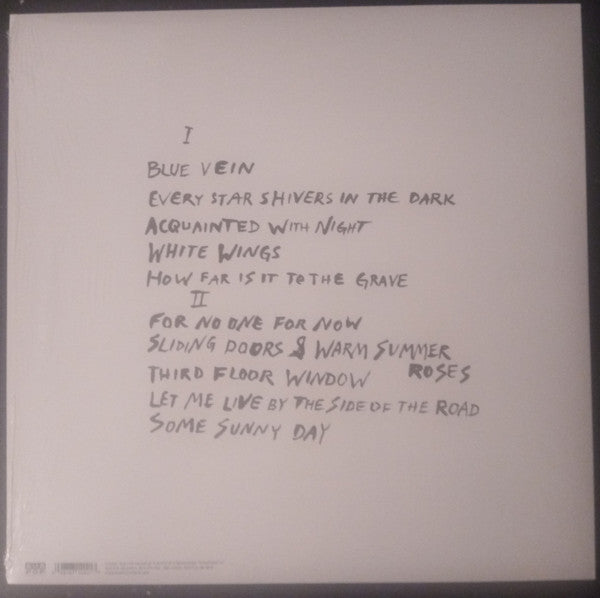 I
BLUE VEIN
EVERY STAR SHIVERS IN THE DARK
ACQUAINTED WITH NIGHT
WHITE WINGS
HOW FAR IS IT TO THE GRAVE
II
FOR NO ONE FOR NOW
SLIDING DOORS & WARM SUMMER
ROSES
THIRD FLOOR WINDOW
LET ME LIVE BY THE SIDE OF THE ROAD
SOME SUNNY DAY